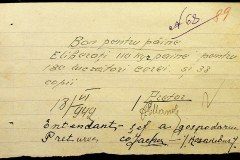 № 63 89
Bon pentru păine
Eliberați 110 kgr păine pentru
180 lucrători evrei și 38
copii
18/VI 1 Pretor
942
Intendant-șef a gospodăriei
Preturei